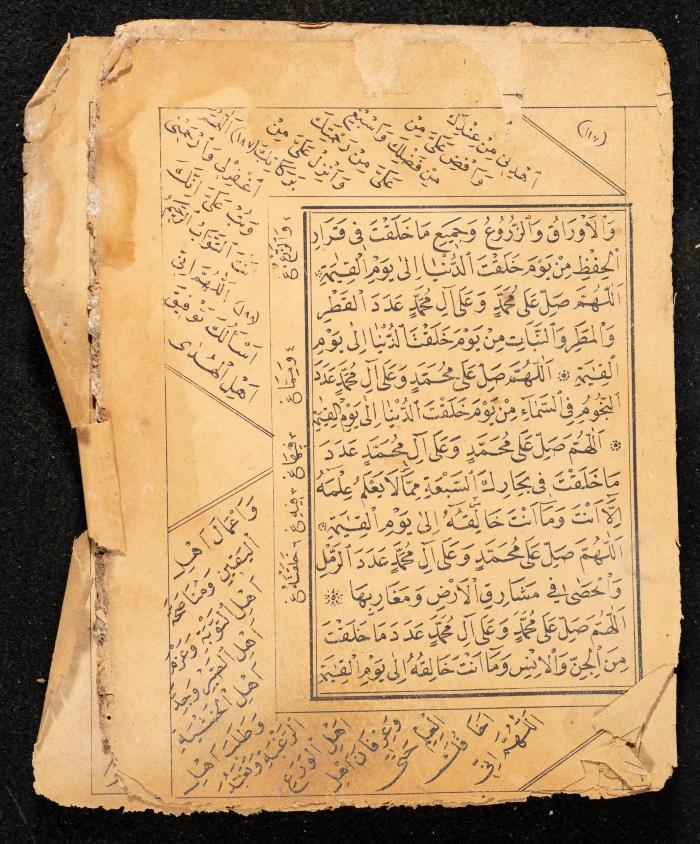 (١١٧)
وَالْاَوْرَاقِ وَالزُّرُوْعِ وَجَمِيْعِ مَاخَلَقْتَ فِىْ قَرَارِ
الْحِفْظِ مِنْ يَوْمِ خَلَقْتَ الدُّنْيَا اِلٰى يَوْمِ الْقِيٰمَةِ
اَللّٰهُمَّ صَلِّ عَلٰى مُحَمَّدٍ وَّعَلٰى اٰلِ مُحَمَّدٍ عَدَدَ الْقَطْرِ
وَالْمَطَرِ وَالنَّبَاتِ مِنْ يَوْمِ خَلَقْتَ الدُّنْيَا اِلٰى يَوْمِ
الْقِيٰمَةِ اَللّٰهُمَّ صَلِّ عَلٰى مُحَمَّدٍ وَّعَلٰى اٰلِ مُحَمَّدٍ عَدَدَ
النُّجُوْمِ فِى السَّمَاءِ مِنْ يَوْمِ خَلَقْتَ الدُّنْيَا اِلٰى يَوْمِ الْقِيٰمَةِ
اَللّٰهُمَّ صَلِّ عَلٰى مُحَمَّدٍ وَّعَلٰى اٰلِ مُحَمَّدٍ عَدَدَ
مَاخَلَقْتَ فِىْ بِحَارِكَ السَّبْعَةِ مِمَّا لَا يَعْلَمُ عِلْمَهٗ
اِلَّا اَنْتَ وَمَا اَنْتَ خَالِقُهٗ اِلٰى يَوْمِ الْقِيٰمَةِ
اَللّٰهُمَّ صَلِّ عَلٰى مُحَمَّدٍ وَّعَلٰى اٰلِ مُحَمَّدٍ عَدَدَ الرَّمْلِ
وَالْحَصٰى فِىْ مَشَارِقِ الْاَرْضِ وَمَغَارِبِهَا
اَللّٰهُمَّ صَلِّ عَلٰى مُحَمَّدٍ وَّعَلٰى اٰلِ مُحَمَّدٍ عَدَدَ مَاخَلَقْتَ
مِنَ الْجِنِّ وَالْاِنْسِ وَمَا اَنْتَ خَالِقُهٗ اِلٰى يَوْمِ الْقِيٰمَةِ
اَهْدِنِىْ مِنْ عِنْدِكَ
وَاَفِضْ عَلَىَّ مِنْ
فَضْلِكَ وَاَسْبِغْ
عَلَىَّ مِنْ رَحْمَتِكَ
وَاَنْزِلْ عَلَىَّ مِنْ
بَرَكَاتِكَ (١٨٧) اَللّٰهُمَّ
اغْفِرْلِىْ وَارْحَمْنِىْ
وَتُبْ عَلَىَّ اِنَّكَ
اَنْتَ التَّوَّابُ الرَّحِيْمُ
(١٨٨) اَللّٰهُمَّ اِنِّىْ
اَسْأَلُكَ تَوْفِيْقَ
اَهْلِ الْهُدٰى
وَاَعْمَالَ اَهْلِ
الْيَقِيْنِ وَمُنَاصَحَةَ
اَهْلِ التَّوْبَةِ وَعَزْمَ
اَهْلِ الصَّبْرِ وَجِدَّ
اَهْلِ الْخَشْيَةِ
وَطَلَبَ اَهْلِ
الرَّغْبَةِ وَتَعَبُّدَ
اَهْلِ الْوَرَعِ
وَعِرْفَانَ اَهْلِ
الْعِلْمِ حَتّٰى
اَخَافَكَ
اَللّٰهُمَّ اِنِّىْ